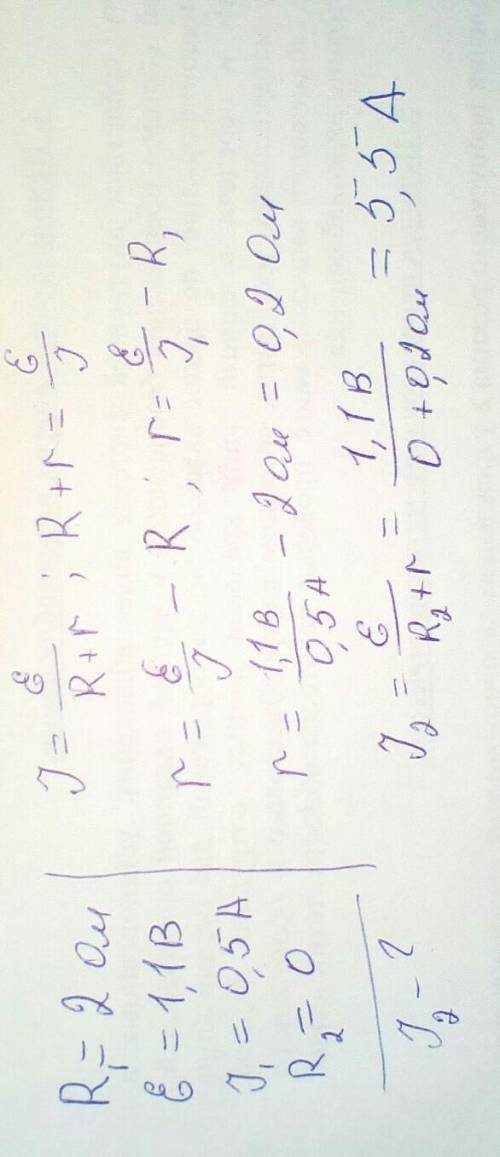 R₁ = 2 Ом
ℰ = 1,1 В
J₁ = 0,5 А
R₂ = 0
J₂ - ?
J = ℰ/(R+r) ; R+r = ℰ/J
r = ℰ/J - R ; r = ℰ/J₁ - R₁
r = 1,1 В/0,5 А - 2 Ом = 0,2 Ом
J₂ = ℰ/(R₂+r) = 1,1 В/(0+0,2 Ом) = 5,5 А